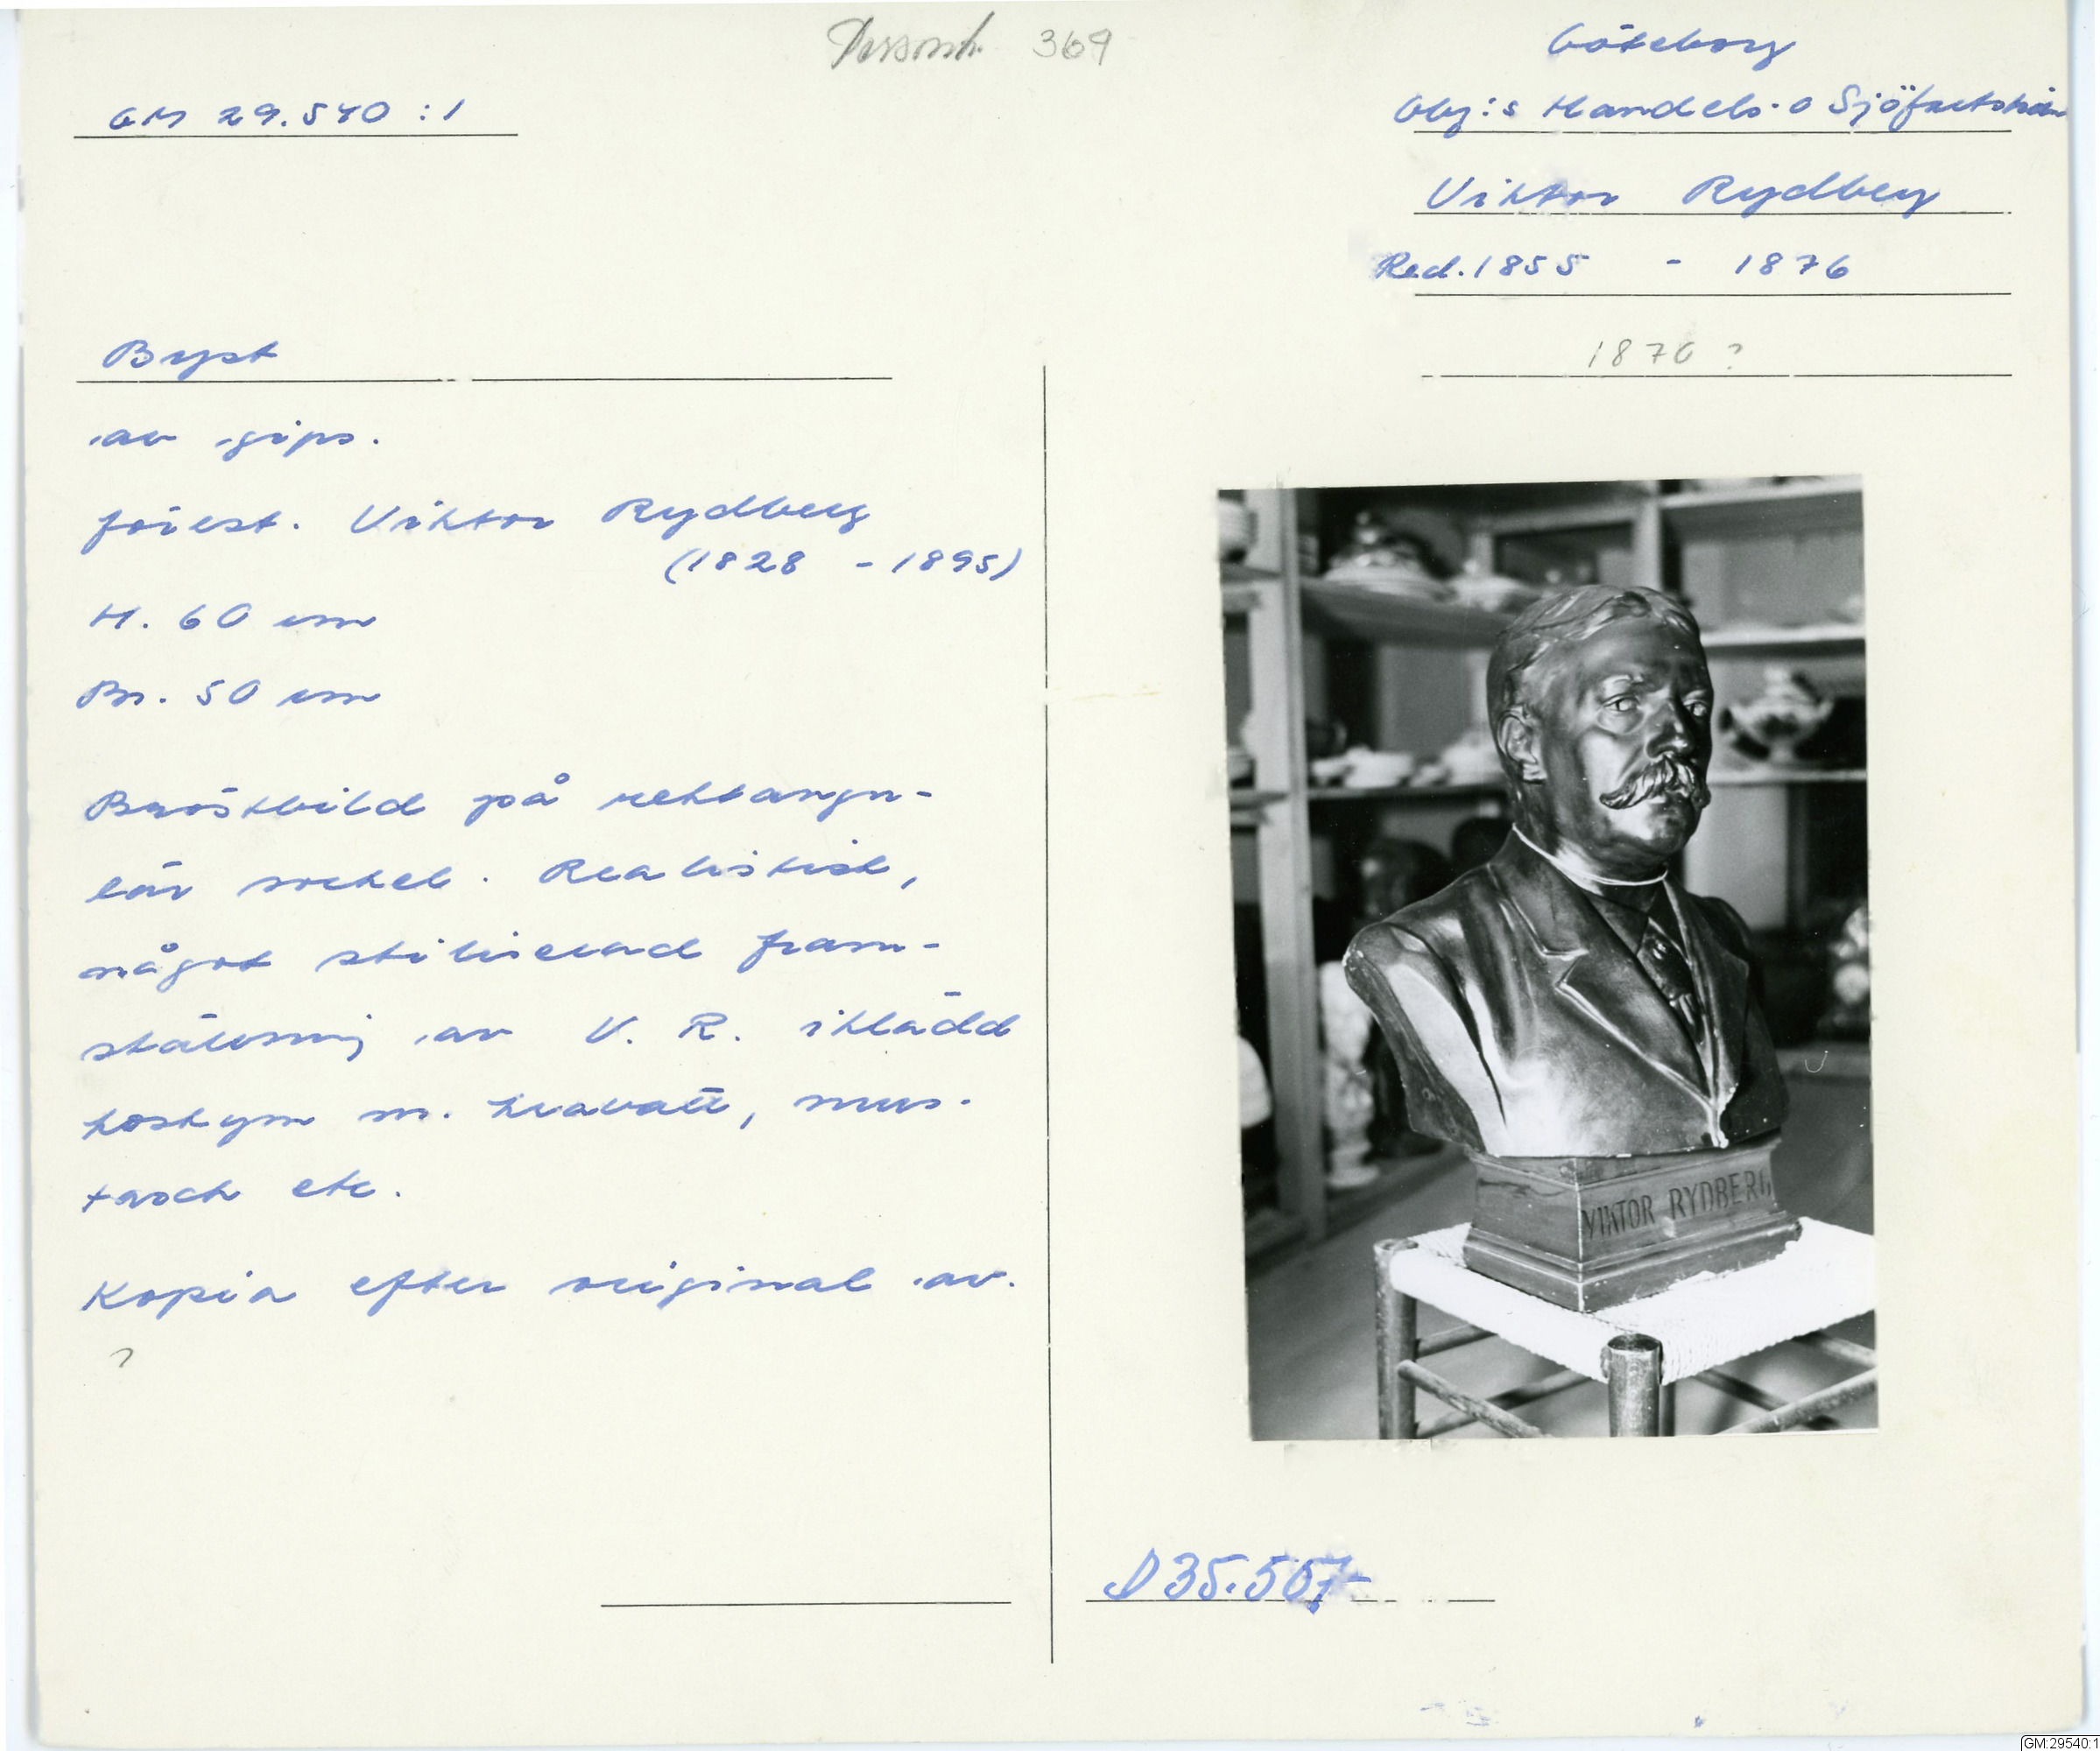 Personh. 369
GM 29.540:1
Göteborg
Gbg:s Handels- o Sjöfartstidn
Viktor Rydberg
Red. 1855 - 1876
1870 ?
Byst
av gips.
förest. Viktor Rydberg
(1828 - 1895)
H. 60 cm
Br. 50 cm
Bröstbild på rektangu-
lär sockel. Realistisk,
något stiliserad fram-
ställning av V. R. iklädd
kostym m. kravatt, mus-
tasch etc.
Kopia efter original av.
?
VIKTOR RYDBERG
D 35.567
GM:29540:1